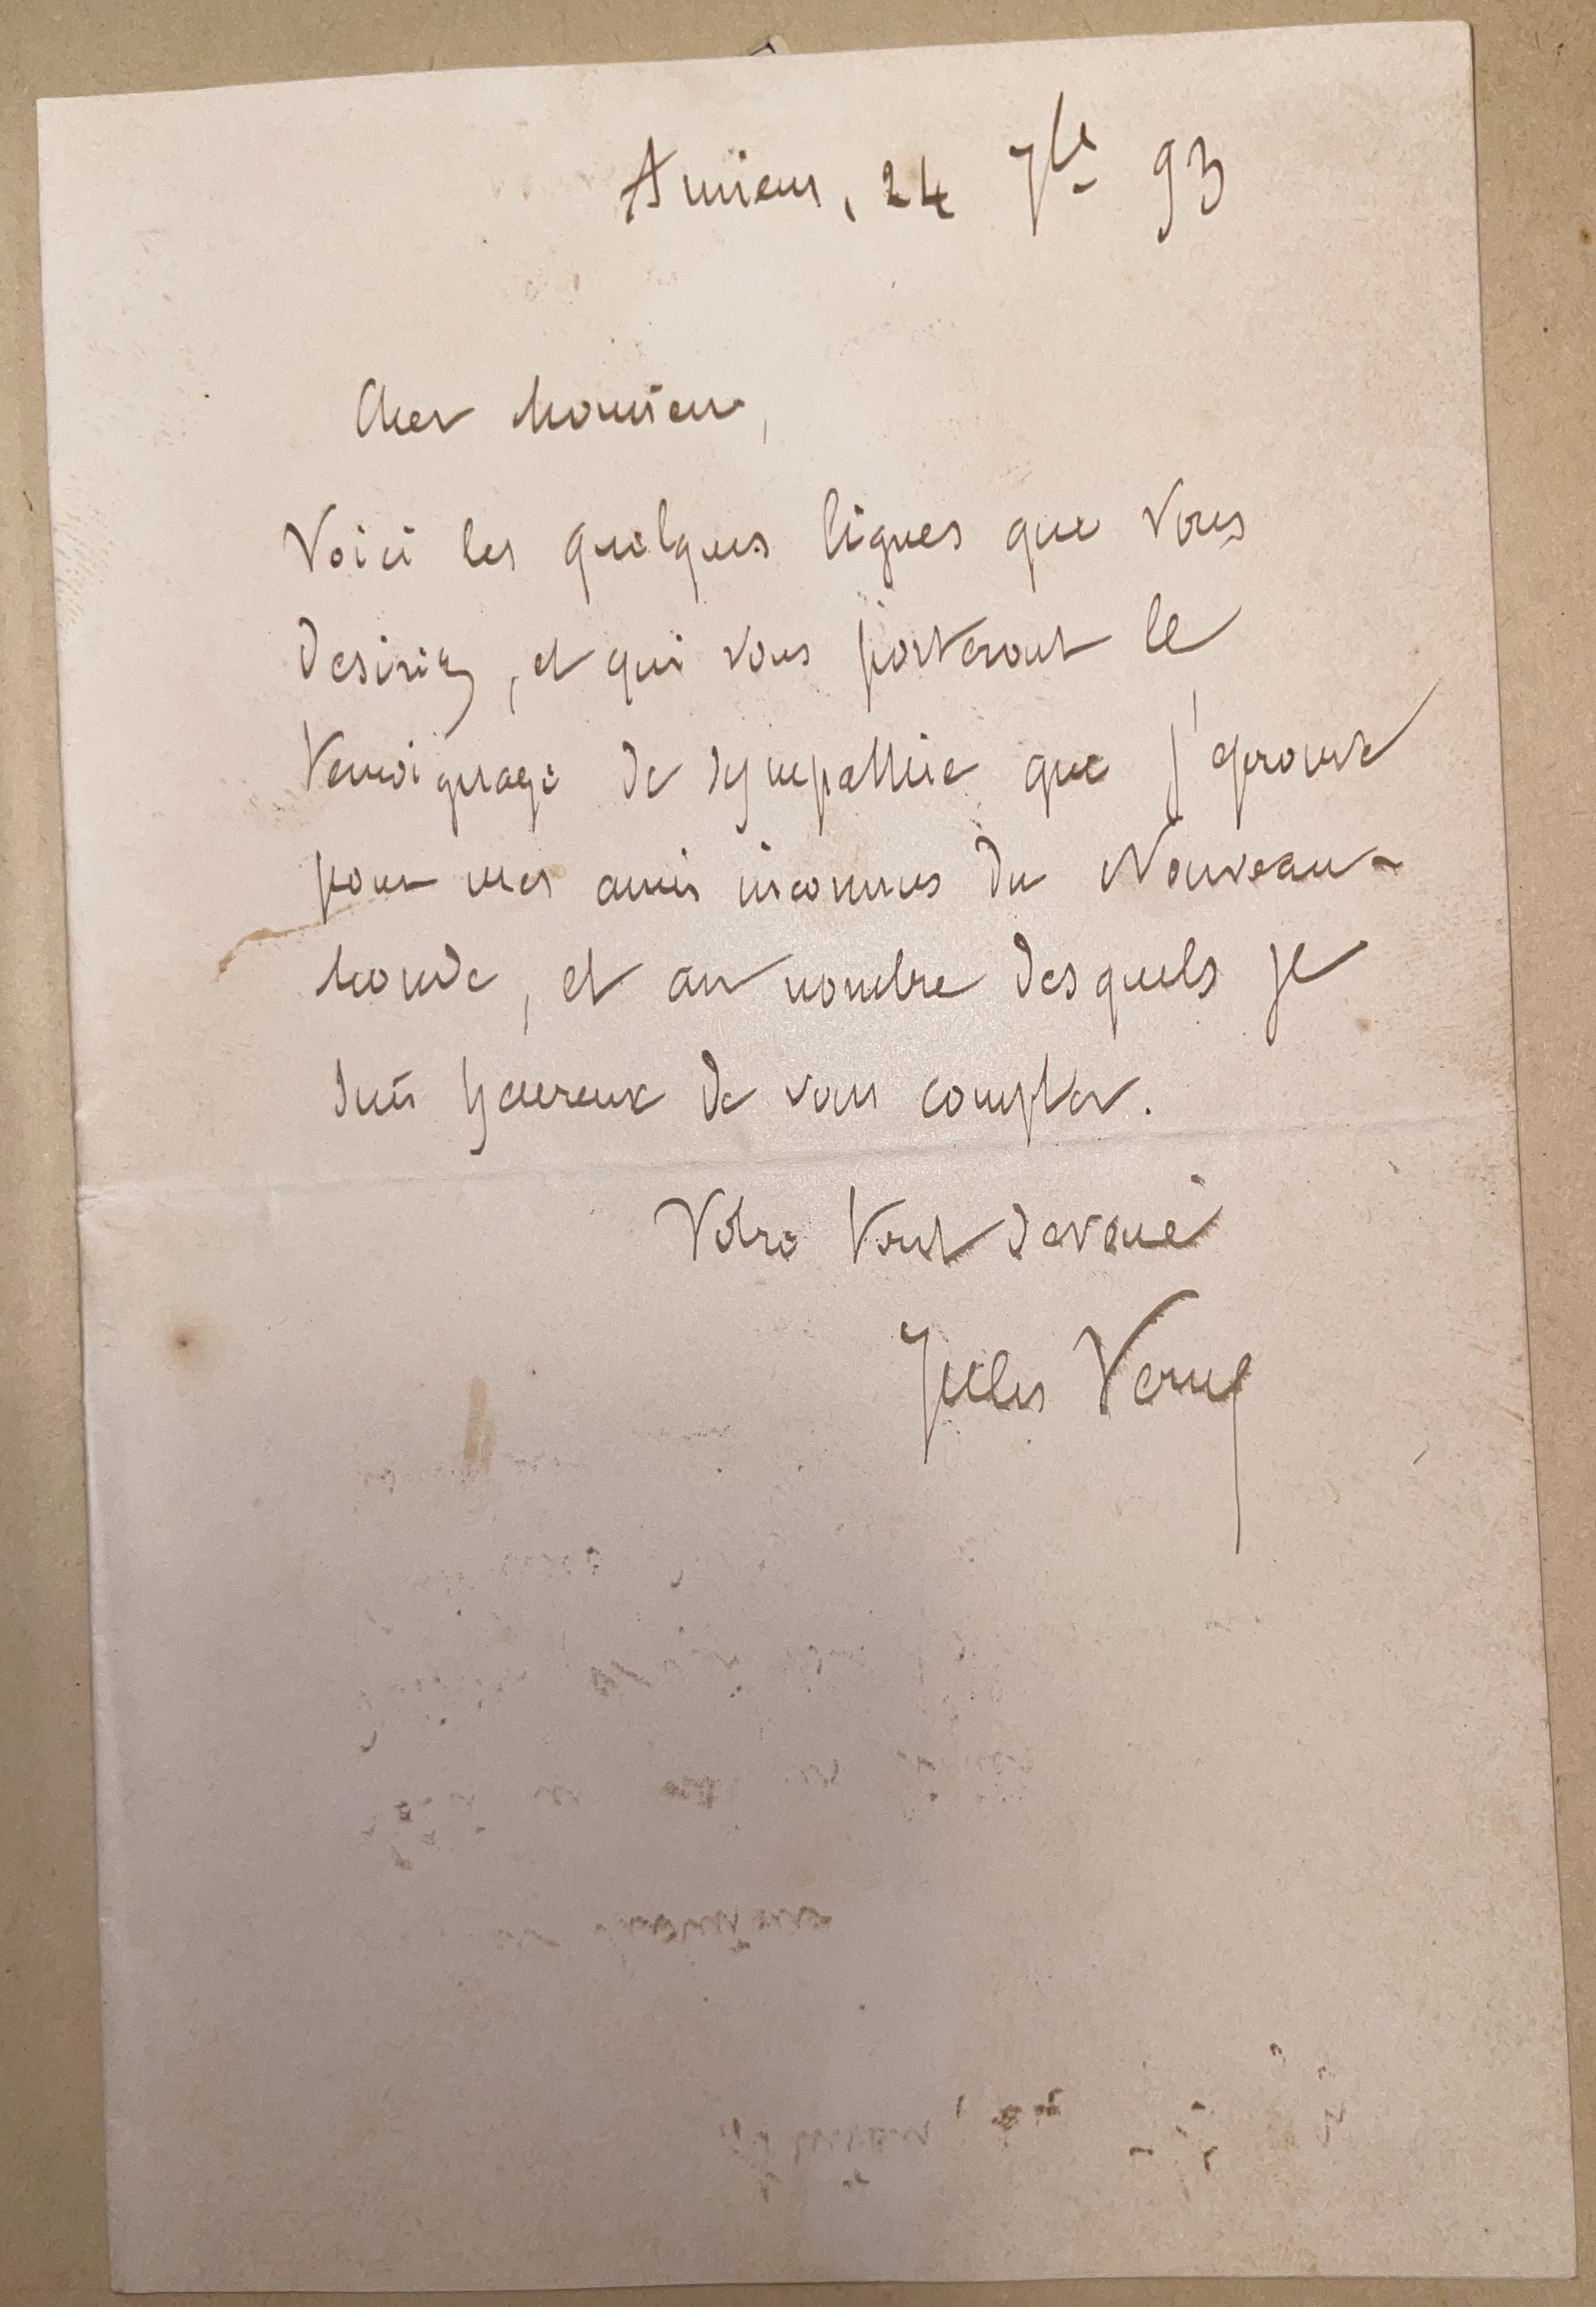 Amiens, 24 7bre 93
Cher Monsieur,
Voici les quelques lignes que vous
desirez, et qui vous porteront le
temoignage de sympathie que j'éprouve
pour mes amis inconnus du Nouveau-
Monde, et au nombre desquels je
suis heureux de vous compter.
Votre tout devoué
Jules Verne